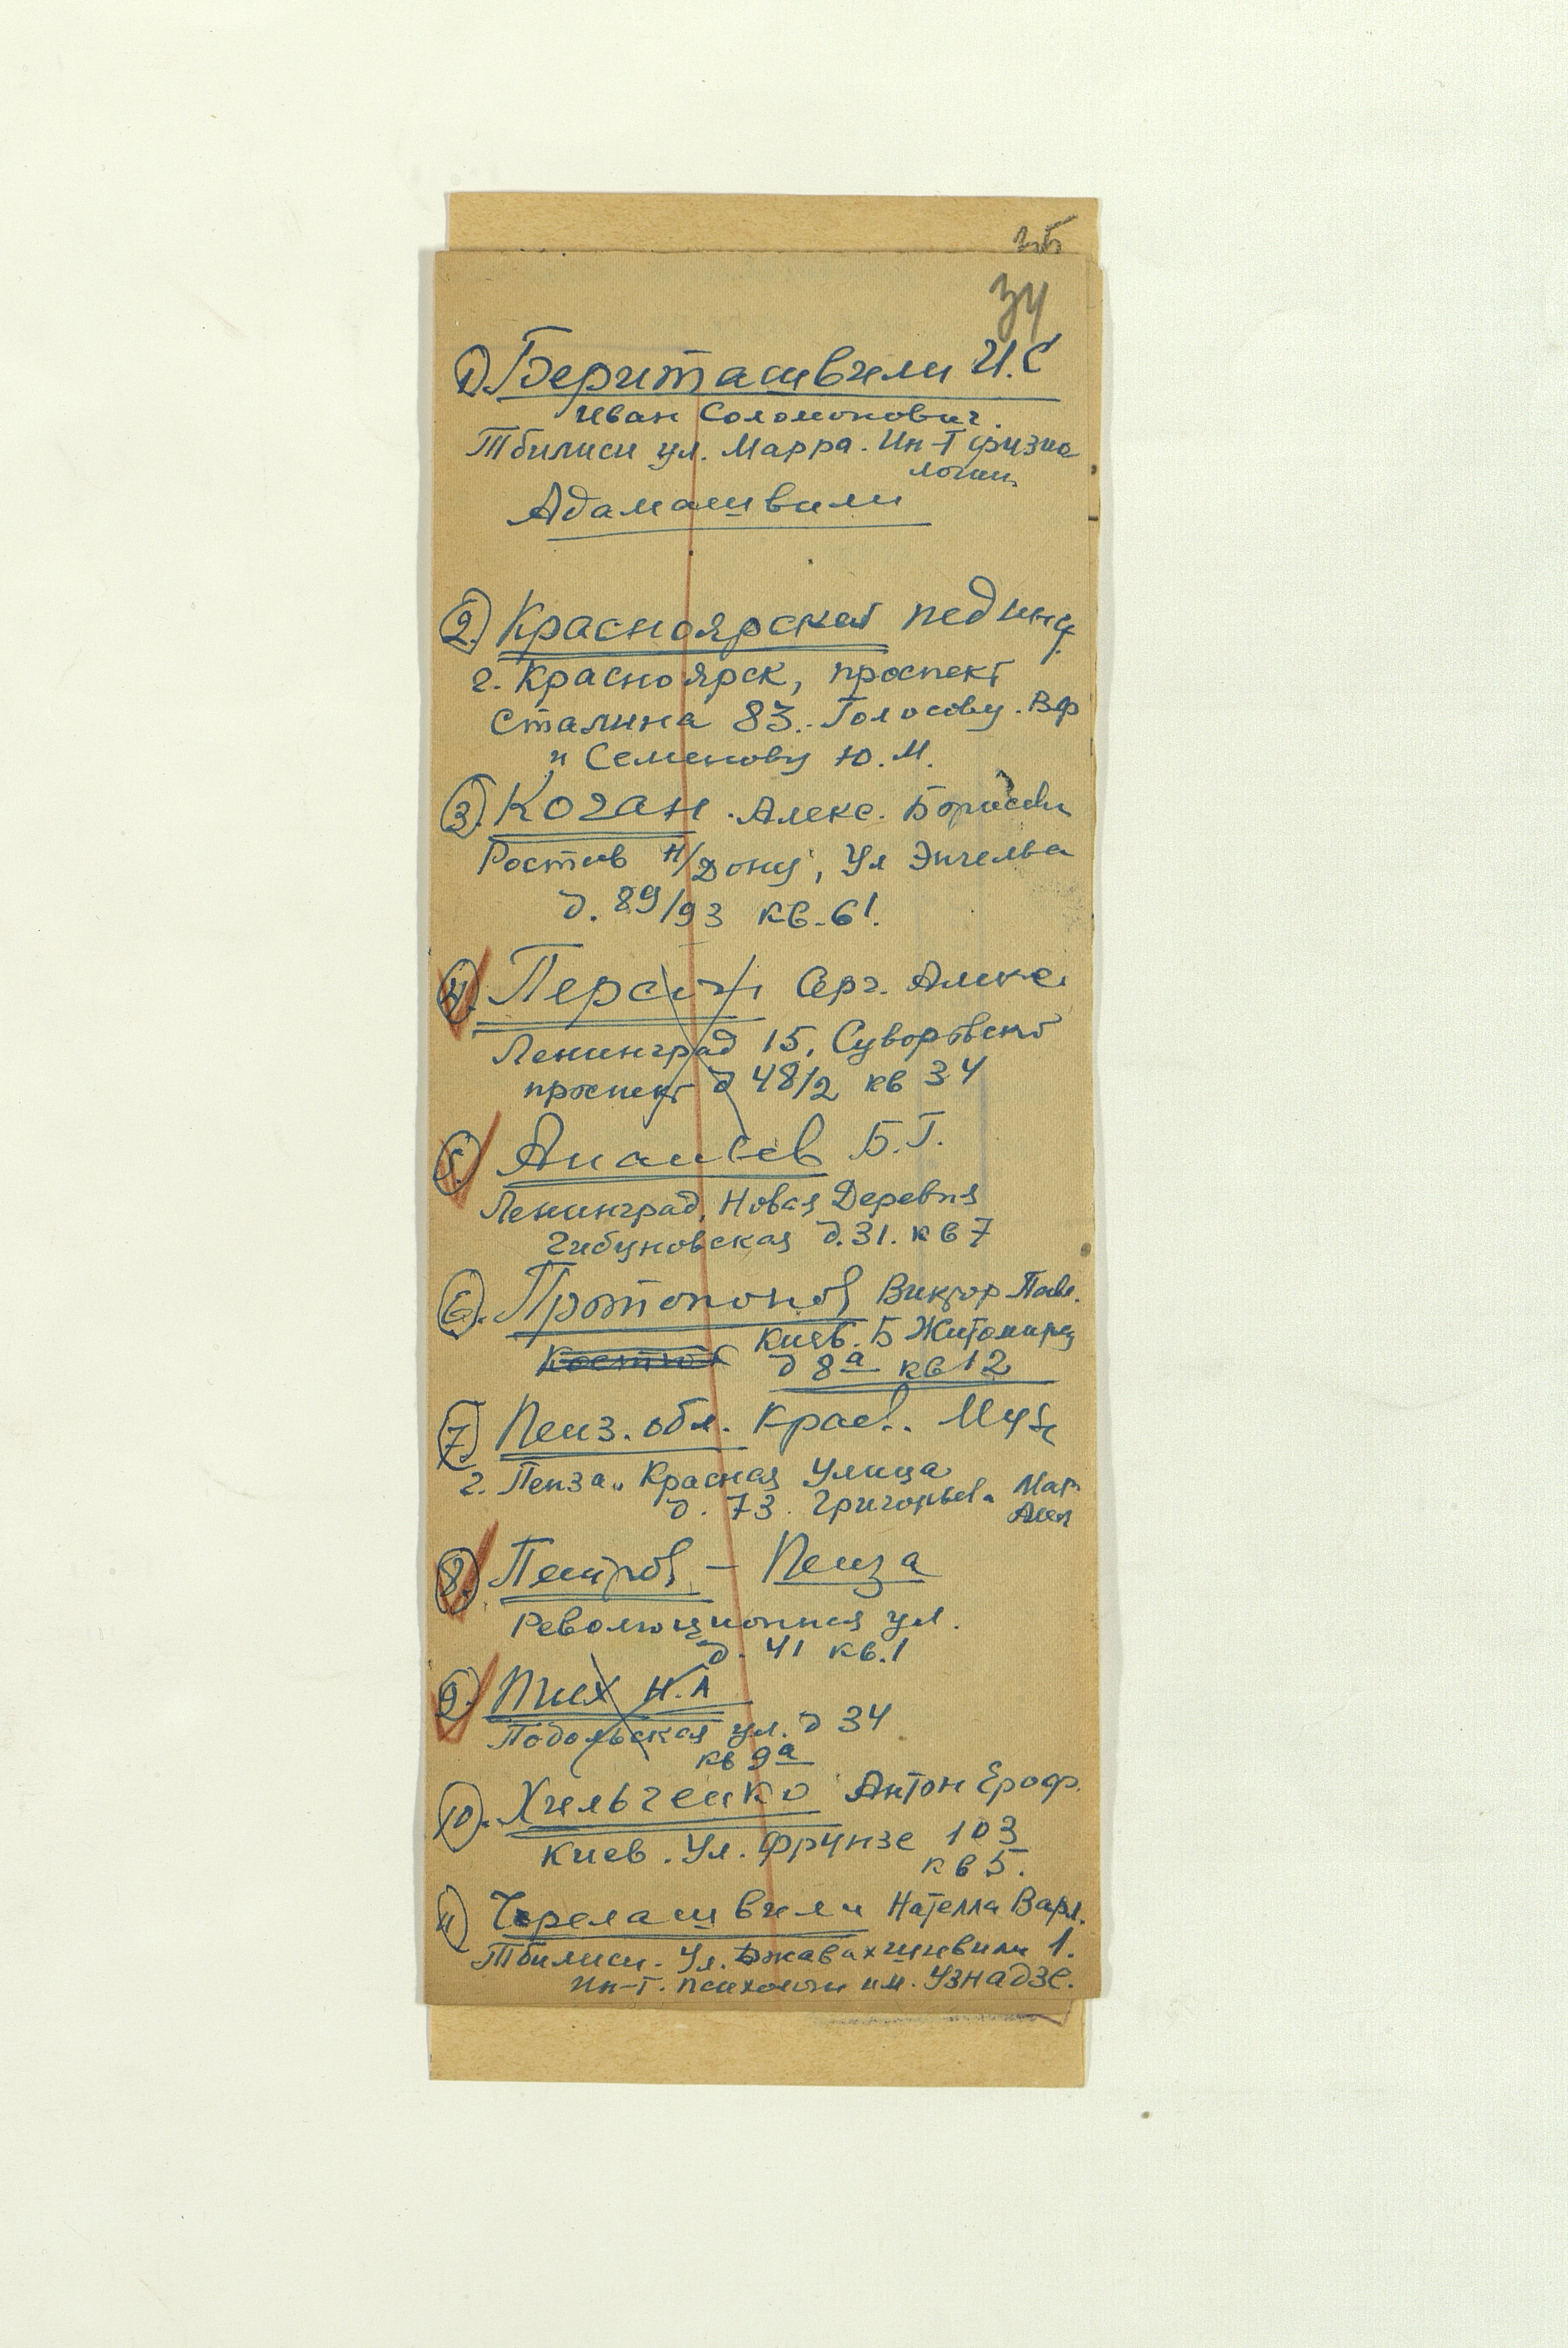 35
34
1). Бериташвили И.С
Иван Соломонович.
Тбилиси ул. Марра. Ин-т физио
логии.
Адамашвили
2. Красноярский пединст.
г. Красноярск, проспект
Сталина 83. Голосову. ВФ
и Семенову Ю.М.
3. Коган. Алекс. Борисови
Ростов н/Дону, Ул Энгельса
д. 89/93 кв. 61.
4. Персон Серг. Алекс.
Ленинград 15, Суворовский
проспект д 48/2 кв 34
5. Ананьев Б.Г.
Ленинград, Новая Деревня
Гибуновская д. 31. кв 7
6. Протопопов Виктор Павл.
Киев. Б Житомирс
д 8а кв 12
7. Пенз. обл. Краев. Муз
г. Пенза. Красная улица
д. 73. Григорьева Мар
Алек
8. Петров - Пенза
Революционная ул.
д. 41 кв. 1
9. Тих Н.А
Подольская ул. д 34
кв 9а
10. Хильченко Антон Ероф.
Киев. Ул. Фрунзе 103
кв 5.
11) Черелашвили Нателла Варл.
Тбилиси. Ул. Джавахишвили 1.
Ин-т. психологии им. Узнадзе.